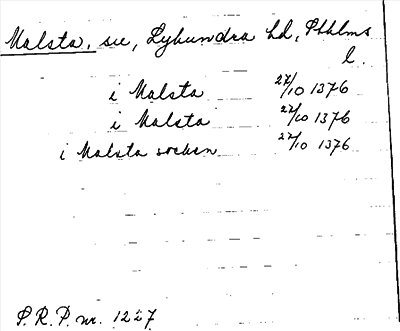 Malsta, sn, Lyhundra hd, Sthlms
l.
i Malsta 27/10 1376
i Malsta 27/10 1376
i Malsta socken 27/10 1376
S.R.P. nr. 1227